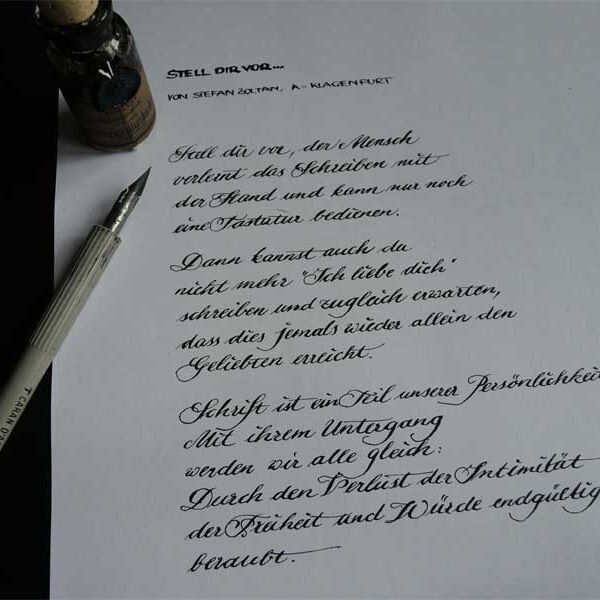 STELL DIR VOR...
VON STEFAN ZOLTAN, A - KLAGENFURT
Stell dir vor, der Mensch
verlernt das Schreiben mit
der Hand und kann nur noch
eine Tastatur bedienen.
Dann kannst auch du
nicht mehr "Ich liebe dich"
schreiben und zugleich erwarten,
dass dies jemals wieder allein den
Geliebten erreicht.
Schrift ist ein Teil unserer Persönlichkei
Mit ihrem Untergang
werden wir alle gleich:
Durch den Verlust der Intimität
der Freiheit und Würde endgültig
beraubt.
CARAN D'A